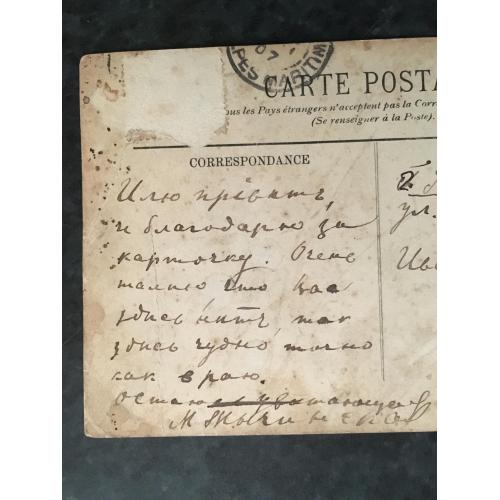 07
PES MARITIM
CARTE POSTA
ous les Pays étrangers n'acceptent pas la Corre
(Se renseigner à la Poste).
CORRESPONDANCE
Шлю привѣтъ
и благодарю за
карточку. Очень
жалко что Вас
здѣсь нѣтъ, так
здѣсь чудно, точно
как в раю.
ул.